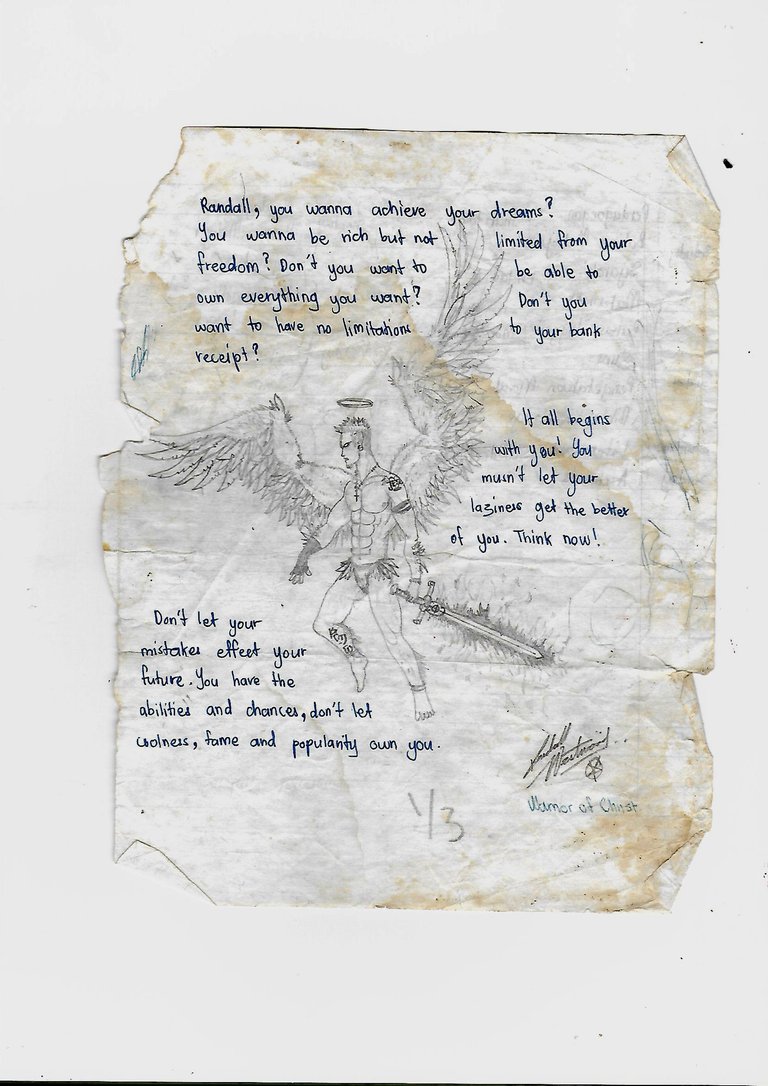 Randall, you wanna achieve your dreams?
You wanna be rich but not limited from your
freedom? Don't you want to be able to
own everything you want? Don't you
want to have no limitations to your bank
receipt?
It all begins
with you! You
musn't let your
laziness get the better
of you. Think now!
Don't let your
mistakes effect your
future. You have the
abilities and chances, don't let
coolness, fame and popularity own you.
Randall
Warrior of Christ
1/3